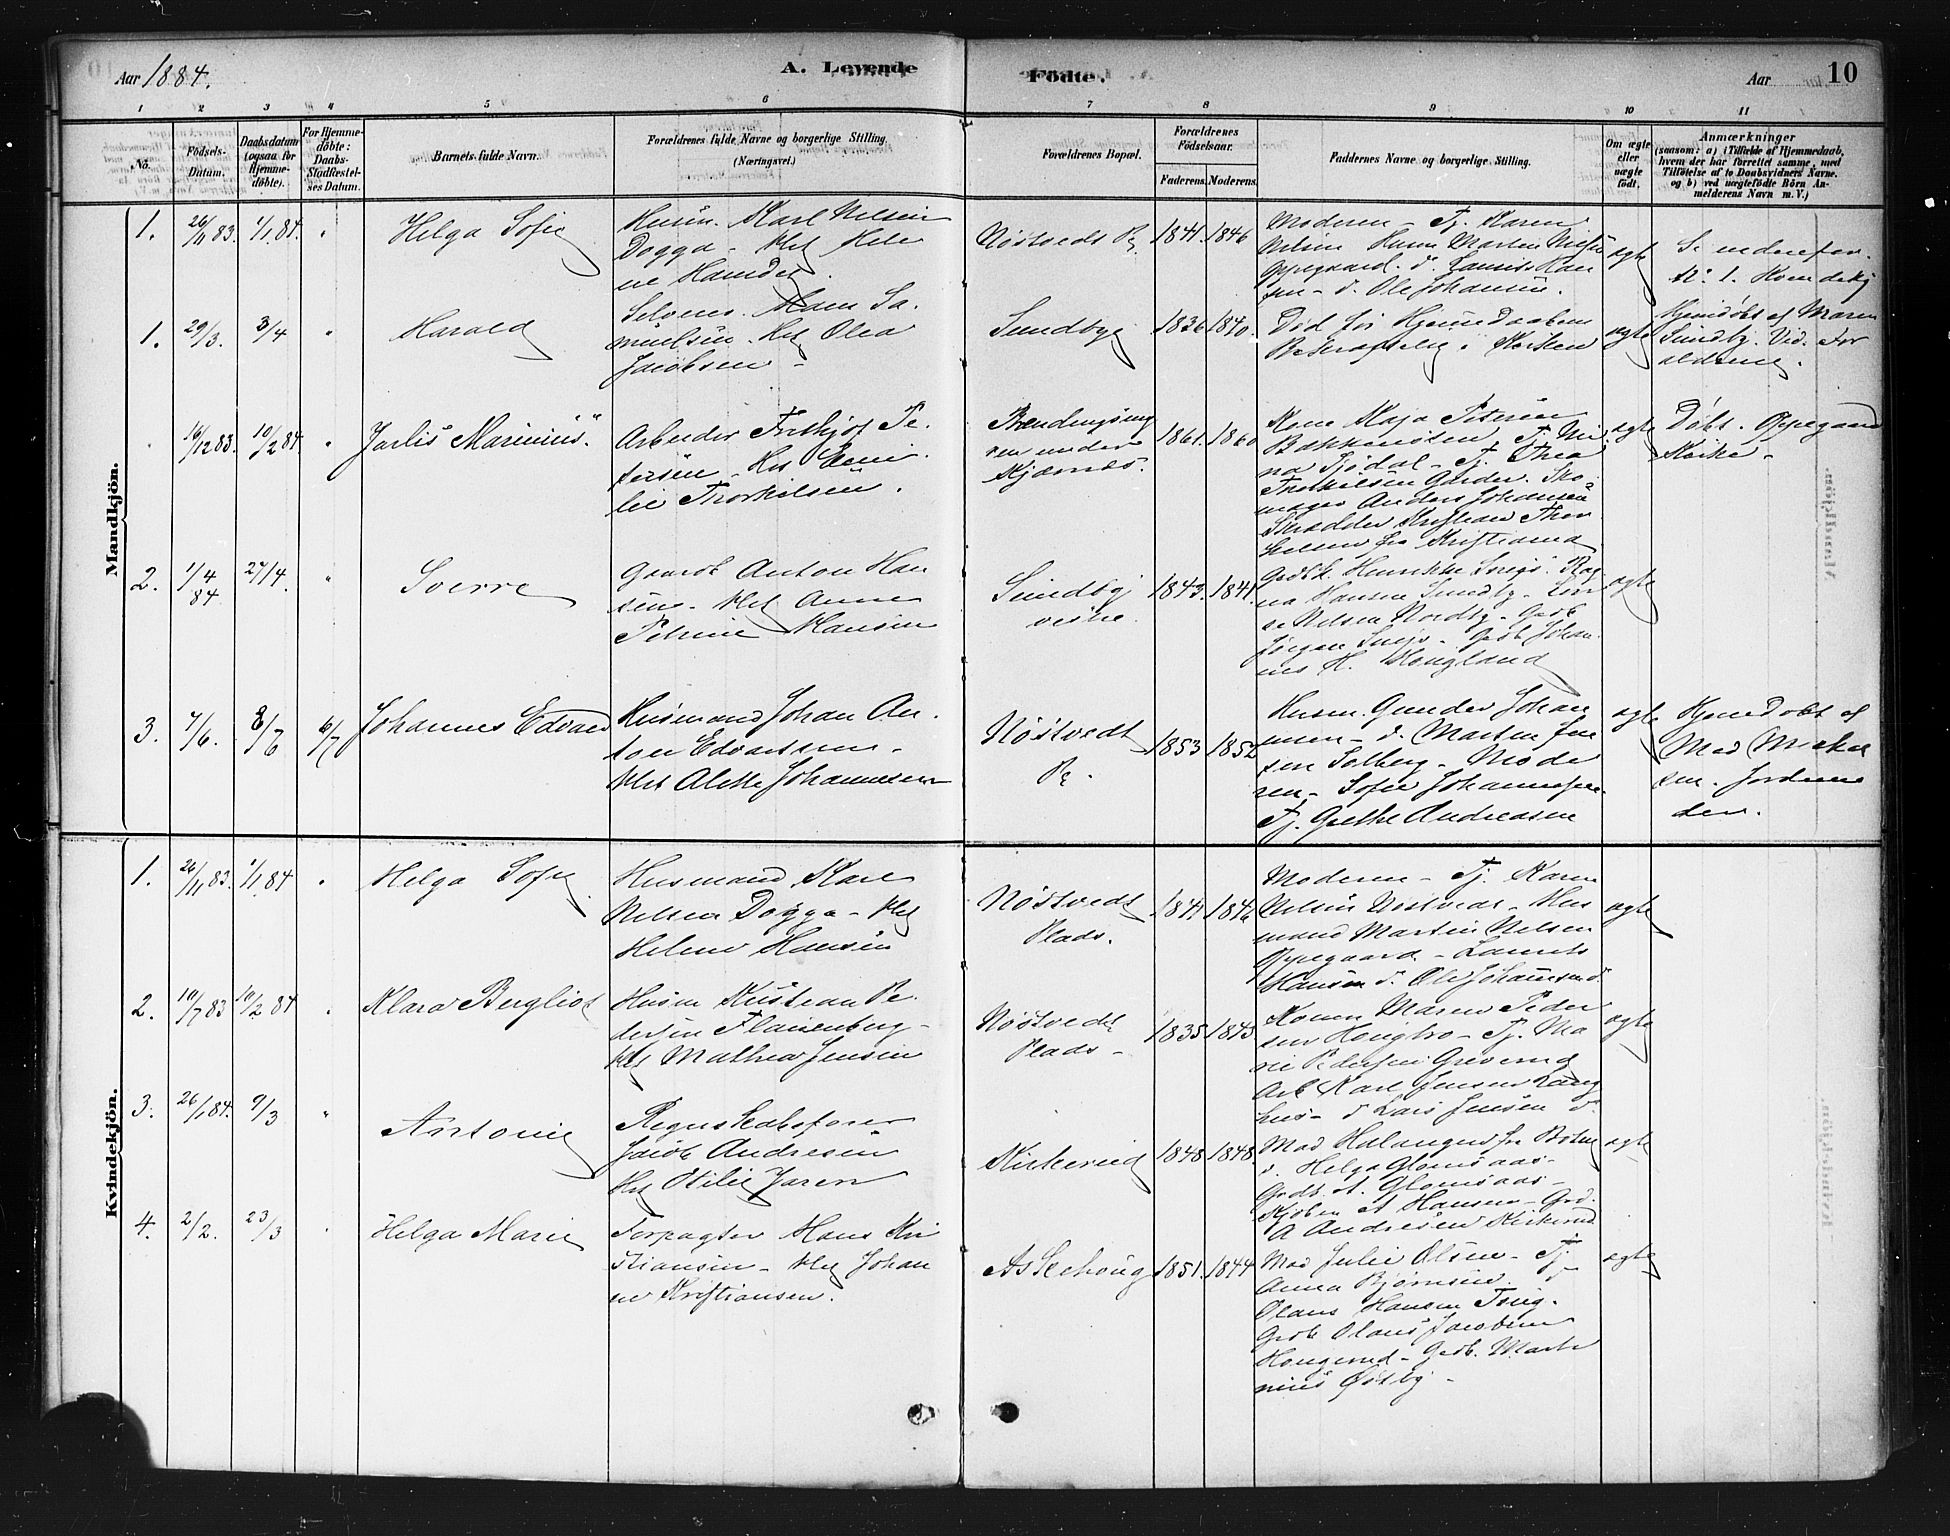 Aar 1884.
A. Levende Födte.
Aar
10
1 2 3 4 5 6 7 8 9 10 11
No.
Födsels-Datum.
Daabsdatum (ogsaa for Hjemme-döbte).
For Hjemme-döbte: Daabs-Stadfæstel-ses Datum.
Barnets fulde Navn.
Forældrenes fulde Navne og borgerlige Stilling. (Næringsvei.)
Forældrenes Bopæl.
Forældrenes Födselsaar.
Faderens. Moderens.
Faddernes Navne og borgerlige Stilling.
Om ægte eller uægte födt.
Anmærkninger (saasom: a) i Tilfælde af Hjemmedaab, hvem der har forrettet samme, med Tilföielse af to Daabsvidners Navne. og b) ved uægtefödte Börn An-melderens Navn m. V.)
Mandkjön.
1. 26/11 83. 1/1 84. "
Helga Sofie
Husm. Karl Nelsen
Dogga - Hst Hele
ne Hansdet.
Nöstvedt Pl 1841. 1846
Moderen - Tj. Karen
Nelsine Husm Martin Nielsen
Oppegaard. d. Laurits Han
sen - d. Ole Johansen.
ægte
Se nedenfor.
No. 1. Kvindekj
1. 29/3. 3/4 "
Harald
Selvei. Hans Sa-
muelsen. Hst Olea
Jacobsen -
Sundby 1836 1840.
Död før Hjemmedaabens
Bekræftelse i Kirken
ægte
Hjemdöbt af Maren
Sundby. Vid. For
ældrene.
" 16/12 83. 10/2 84. "
Jarlis Marinius.
Arbeider Frithjof Pe-
tersen - Hst Emi-
lie Thorkilsen.
Brændengsmy
ren under
Kjærnes. 1861. 1860
Kone Maja Petersen
Bakkemosten, Tj. Mi
na Sjödal - Tj. Thea
Thorkilsen Garder. Sko-
mager Anders Johansen
Skrædder Kristian Thor
kelsen fra Kristiania
ægte
Döbt i Oppegaard
Kirke -
2. 1/4 84 27/4. "
Sverre
Gaardb Anton Han
sen - Hst Anne
Petrine Hansen
Sundby
vestre. 1843. 1841.
Gaardb. Henrikke
na Hansen Sundby -
se Nelsen Nordby - Gaardb
Jörgen - Gaardb Johan
nes H. Hougland
ægte
3. 7/6. 8/6 6/7
Johannes Edvard
Husmand Johan An-
ton Edvartsen -
Hst Alette Johannesen
Nöstvedt
Pl. 1853 1852
Husm. Gunder Johan
nesen - d. Martin Jen
sen Solberg - Mode
ren - Sofie Johannesen
Tj. Grethe Andreasen
ægte
Hjemdöbt af
Mad Mickel
sen. Jordmo
der.
Kvindekjön.
1. 26/11 83. 1/1 84 "
Helga Sofie
Husmand Karl
Nelsen Dogga - Hst
Helene Hansen
Nöstvedt
Plads. 1841 1846
Moderen - Tj. Karen
Nelsen Nöstvedt - Hus
mand Martin Nelsen
Oppegaard - Laurits
Hansen d. Ole Johannesen d.
ægte
2. 10/7 83 10/2 84 "
Klara Bergliot
Husm Kristian Pe-
dersen Flaisenberg -
Hst Mathea Jensen
Nöstvedt
Plads - 1835. 1843.
Konen Maren Peder
sen Hougbro - Tj. Ma
rie Pedersen Greverud
Arb Karl Jensen Lang
hus - d Lars Jensen d.
ægte
3. 26/1 84. 9/3 "
Antonie
Regnskabsförer
Jacob Andresen
Hst Otilie Jaren
Kirkerud 1848 1848.
Mad Halangen fra
d. Helga Glomsaas -
Godb. A. Glomsaas -
Kjöbm A Hansen - Grd.
A Andresen Kirkerud
ægte
4. 2/2. 23/3 "
Helga Marie
Forpagter Hans Kri
stiansen - Hst Johan
ne Kristiansen.
Askehoug 1851. 1844
Mad Julie Olsen - Tj.
Anna Björnsen. d
Olaus Hansen
Gaardb Olaus Jacobsen
Hougerud - Gaardb. Mart
nius Östby -
ægte